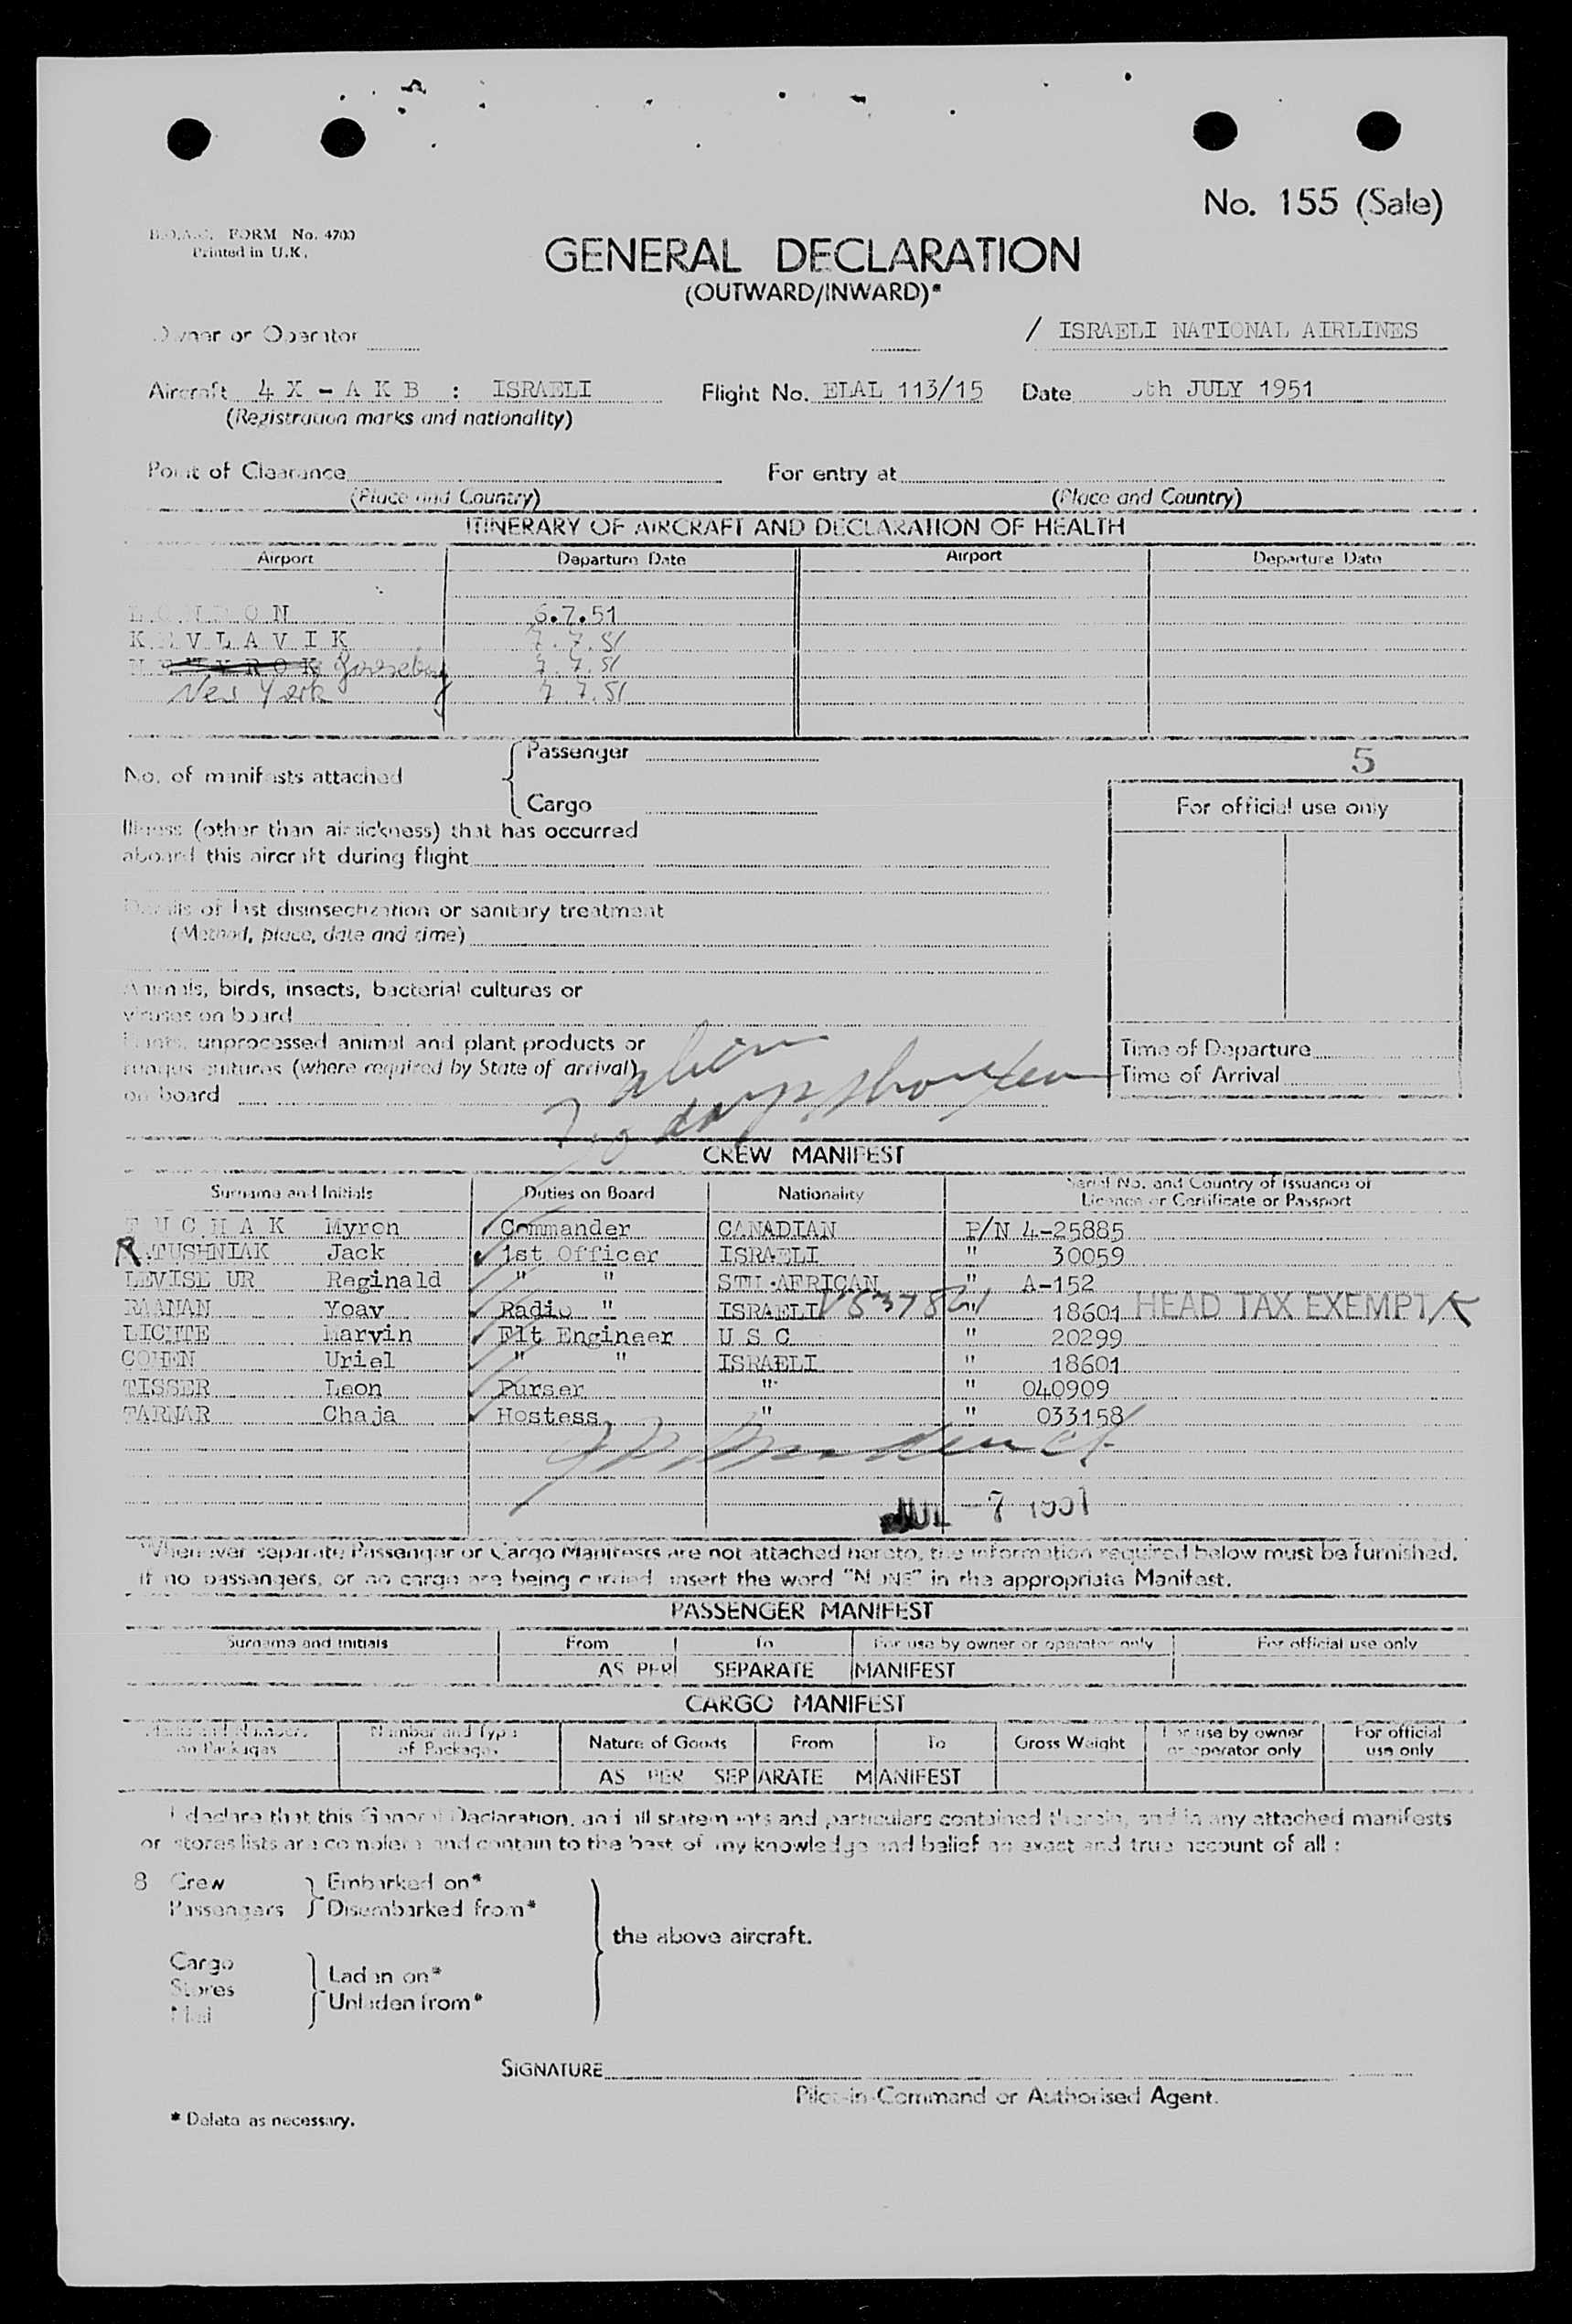 No. 155 (Sale)
B.O.A.C. FORM No. 4700
Printed in U.K.
GENERAL DECLARATION
(OUTWARD/INWARD)*
Owner or Operator / ISRAELI NATIONAL AIRLINES
Aircraft 4 X - A K B : ISRAELI Flight No. ELAL 113/15 Date th JULY 1951
(Registration marks and nationality)
Point of Clearance For entry at
(Place and Country) (Place and Country)
ITINERARY OF AIRCRAFT AND DECLARATION OF HEALTH
Airport Departure Date Airport Departure Date
L O N D O N 6.7.51
K E V L A V I K 7.7.51
Goosebay 7.7.51
New York 7.7.51
Passenger
No. of manifests attached
5
Cargo
For official use only
Illness (other than airsickness) that has occurred
aboard this aircraft during flight
Details of last disinsectization or sanitary treatment
(Method, place, date and time)
Animals, birds, insects, bacterial cultures or
viruses on board
Plants, unprocessed animal and plant products or
fungus cultures (where required by State of arrival)
on board
Time of Departure
Time of Arrival
CREW MANIFEST
Surname and Initials Duties on Board Nationality Serial No. and Country of Issuance of
Licence or Certificate or Passport
Myron Commander CANADIAN P/N 4-25885
RATUSHNIAK Jack 1st Officer ISRAELI " 30059
LEVISE UR Reginald " " STH AFRICAN " A-152
RAANAN Yoav Radio " ISRAELI " 18601 HEAD TAX EXEMPT
LICHTE Marvin Flt Engineer U S C " 20299
COHEN Uriel " " ISRAELI " 18601
TISSER Leon Purser " " 040909
TARNAR Chaja Hostess " " 033158
JUL -7 1951
Whenever separate Passenger or Cargo Manifests are not attached hereto, the information required below must be furnished.
If no passengers, or no cargo are being carried insert the word "NONE" in the appropriate Manifest.
PASSENGER MANIFEST
Surname and Initials From To For use by owner or operator only For official use only
AS PER SEPARATE MANIFEST
CARGO MANIFEST
Marks and Numbers on Packages Number and Type of Packages Nature of Goods From To Gross Weight For use by owner or operator only For official use only
AS PER SEPARATE MANIFEST
I declare that this General Declaration, and all statements and particulars contained therein, and in any attached manifests
or stores lists are complete and contain to the best of my knowledge and belief an exact and true account of all :
8 Crew Embarked on*
Passengers Disembarked from*
the above aircraft.
Cargo
Laden on*
Stores
Unladen from*
Mail
SIGNATURE
Pilot-in-Command or Authorised Agent.
* Delete as necessary.